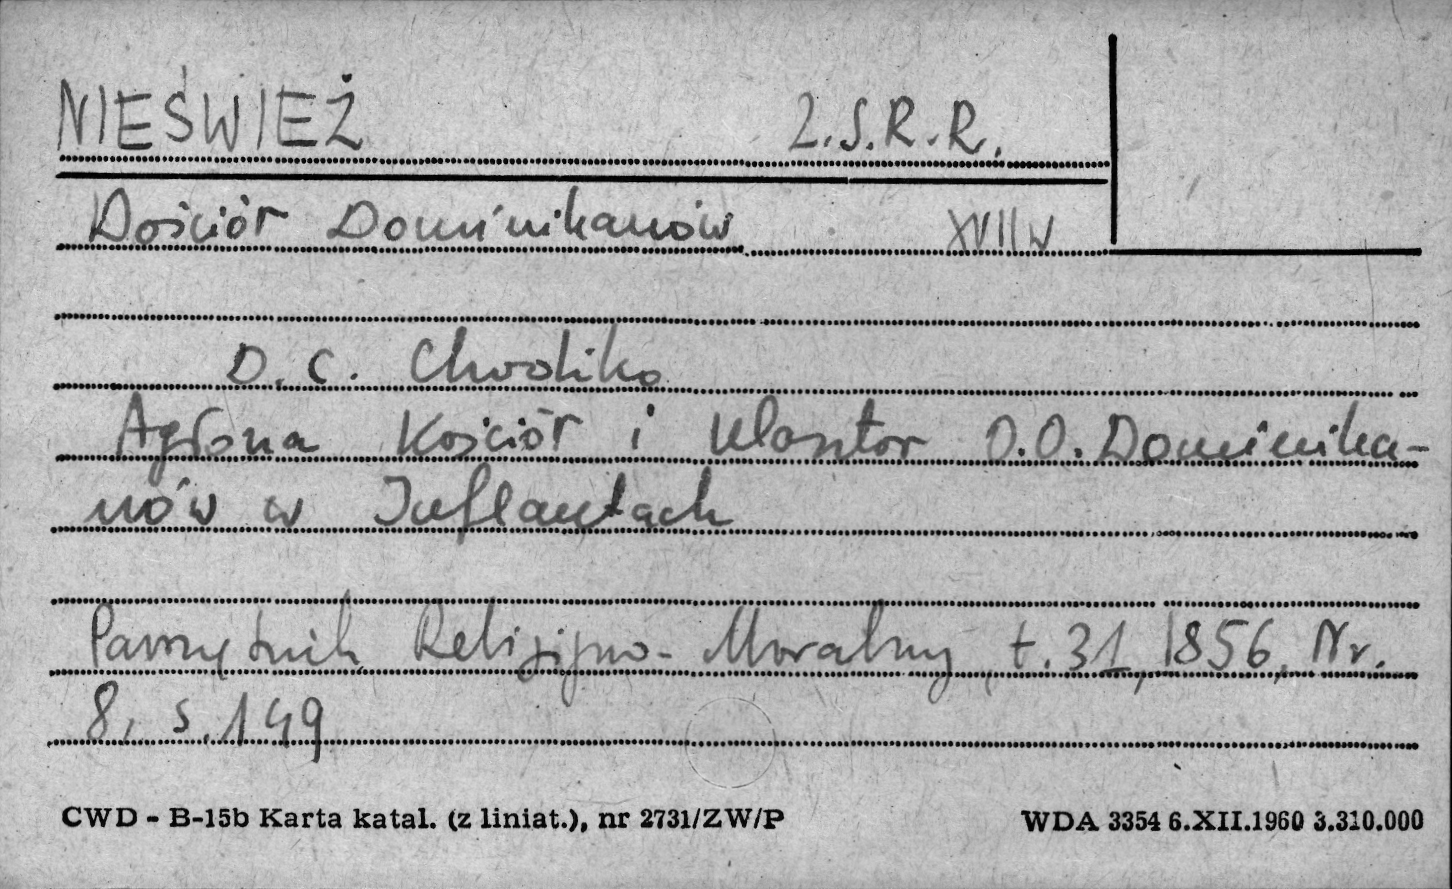 NIEŚWIEŻ Z.S.R.R.
Kościół Dominikanów XVII w
D. C. Chodźko
Agłona Kościół i klasztor O.O. Dominika-
nów w Inflantach
Pamiętnik Religijno-Moralny, t. 31, 1856, Nr.
8, s. 149
CWD - B-15b Karta katal. (z liniat.), nr 2731/ZW/P WDA 3354 6.XII.1960 3.310.000